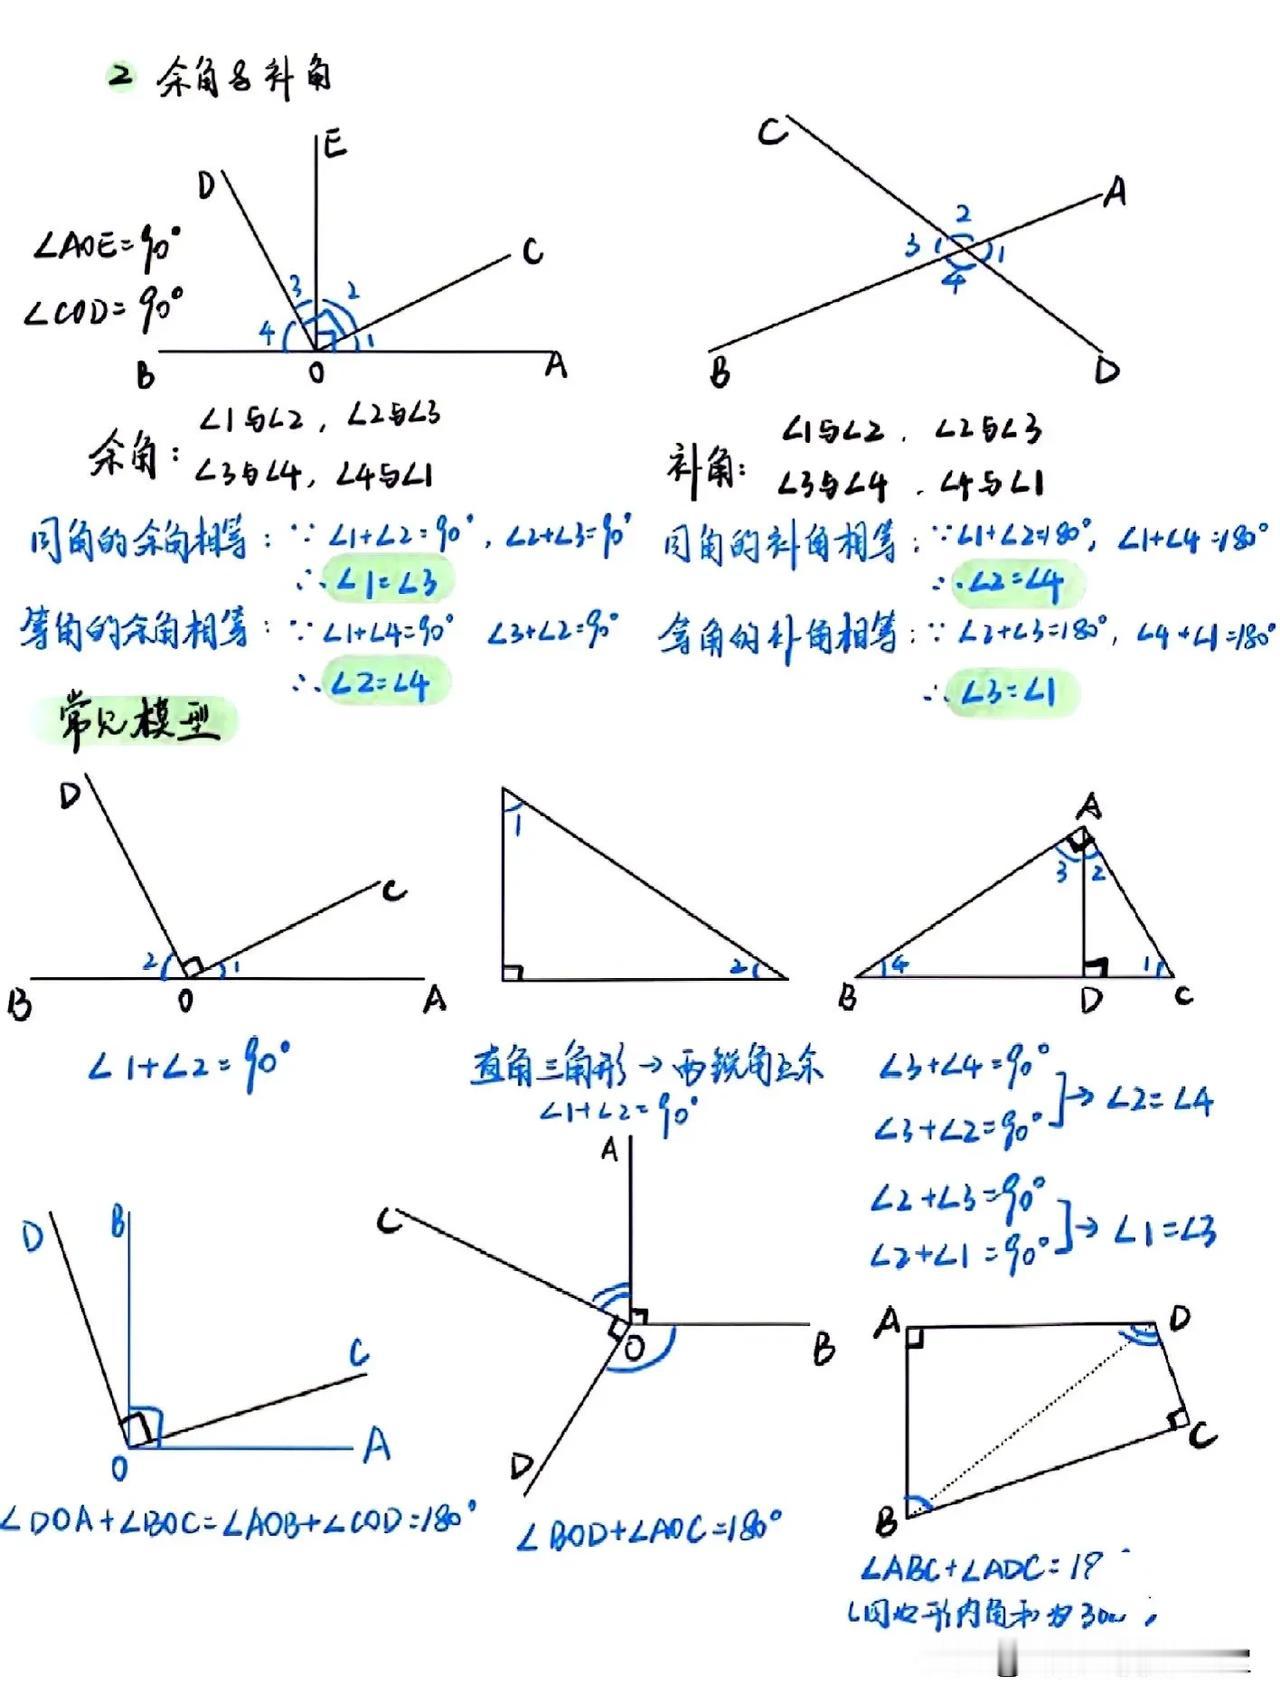 2 余角&补角
E
D
C
∠AOE=90°
∠COD=90°
3 2
4 1
B O A
C
A
2
3 1
4
B D
余角: ∠1与∠2, ∠2与∠3
∠3与∠4, ∠4与∠1
补角: ∠1与∠2, ∠2与∠3
∠3与∠4, ∠4与∠1
同角的余角相等: ∵ ∠1+∠2=90°, ∠2+∠3=90°
∴ ∠1=∠3
等角的余角相等: ∵ ∠1+∠4=90° ∠3+∠2=90°
∴ ∠2=∠4
同角的补角相等: ∵∠1+∠2=180°, ∠1+∠4=180°
∴ ∠2=∠4
等角的补角相等: ∵ ∠2+∠3=180°, ∠4+∠1=180°
∴ ∠3=∠1
常见模型
D
C
2 1
B O A
∠1+∠2=90°
1
2
直角三角形→两锐角互余
∠1+∠2=90°
A
3 2
4 1
B D C
∠3+∠4=90°
∠3+∠2=90° → ∠2=∠4
∠2+∠3=90°
∠2+∠1=90° → ∠1=∠3
D B
C
O A
∠DOA+∠BOC=∠AOB+∠COD=180°
A
C
O B
D
∠BOD+∠AOC=180°
A D
C
B
∠ABC+∠ADC=18
形内角和为